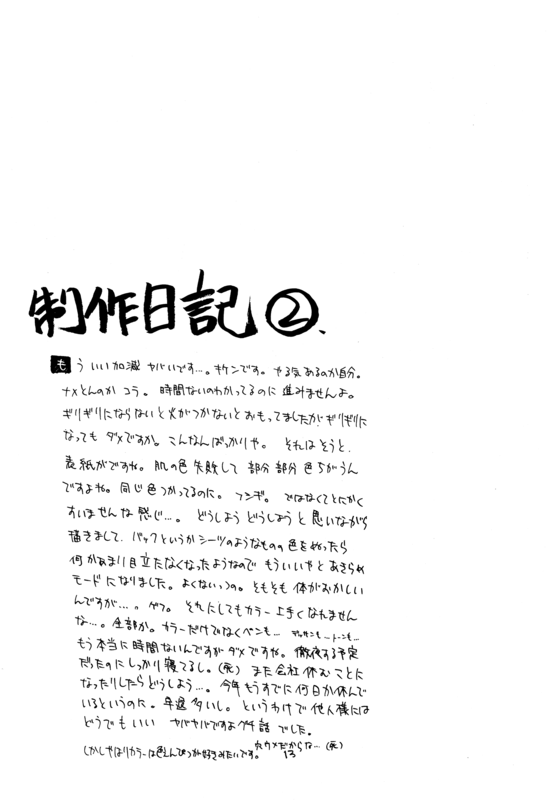 制作日記②、
もういい加減ヤバいです…。キケンです。やる気あるのか自分。
ナメとんのかコラ。時間ないのわかってるのに進みませんよ。
ギリギリにならないと火がつかないとおもってましたが、ギリギリに
なってもダメですか。こんなんばっかりや。それはそうと、
表紙がですね。肌の色失敗して部分部分色ちがうん
ですよね。同じ色つかってるのに。フシギ。ではなくてとにかく
すいませんな感じ…。どうしようどうしようと思いながら
描きまして、バックというかシーツのようなものの色をぬったら
何かあまり目立たなくなったようなのでもういいやとあきらめ
モードになりました。よくないっつの。ともとも体がおかしい
んですが…。ゲフ。それにしてもカラー上手くなれません
な…。全部か。カラーだけでなくペンも…デッサンも…トーンも…
もう本当に時間ないんですがダメですね。徹夜する予定
だったのにしっかり寝てるし。(死)また会社休むことに
なったりしたらどうしよう…。今年もうすでに何日か休んで
いるというのに。早退多いし。というわけで他人様には
どうでもいいヤバヤバですよグチ話でした。
しかしやはりカラーは色えんぴつが好きみたいです。
だからな…(死)
13